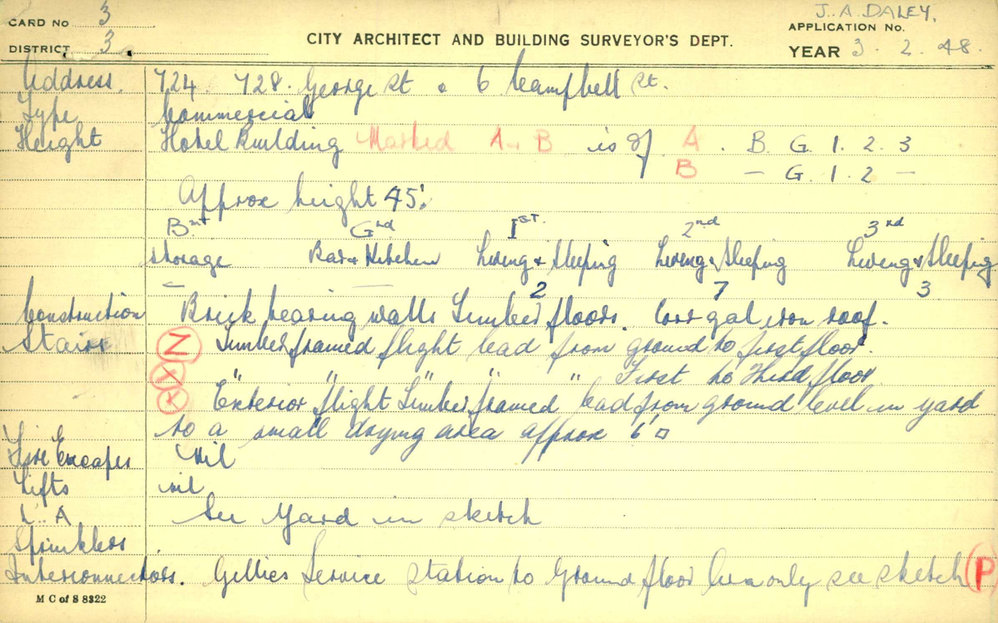 CARD No 3
J. A. DALEY.
APPLICATION No.
DISTRICT 3.
CITY ARCHITECT AND BUILDING SURVEYOR'S DEPT.
YEAR 3. 2. 48.
Address. 724 728. George St & 6 Campbell St.
Type Commercial
Height Hotel Building Marked A & B is of A. B. G. 1. 2. 3
B — G. 1. 2 —
Approx height 45'.
Bmt Gnd 1ST. 2nd 3rd
Storage Bar & Kitchen Living & Sleeping Living & Sleeping Living & Sleeping
— — 2 7 3
Construction Brick bearing walls Timber floors. Corr gal iron roof.
Stairs N Timber framed flight lead from ground to first floor.
X " " " " " First to Third floor
Exterior flight Timber framed lead from ground level in yard
to a small drying area approx 6 □
Fire Escapes Nil
Lifts nil
L. A See Yard in sketch
Sprinklers
Interconnectors. Gillies Service Station to Ground floor only see sketch P
M C of S 8322